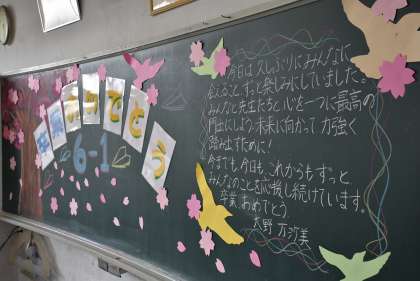 卒業おめでとう
6-1
今日は久しぶりにみんなに
会えることを、ずっと楽しみにしていました。
みんなと先生たちと心を一つに最高の
門出にしよう 未来に向かって力強く
踏み出すために!
今までも、今日も、これからもずっと
みんなのことを応援し続けています。
卒業おめでとう
大野 万弥美